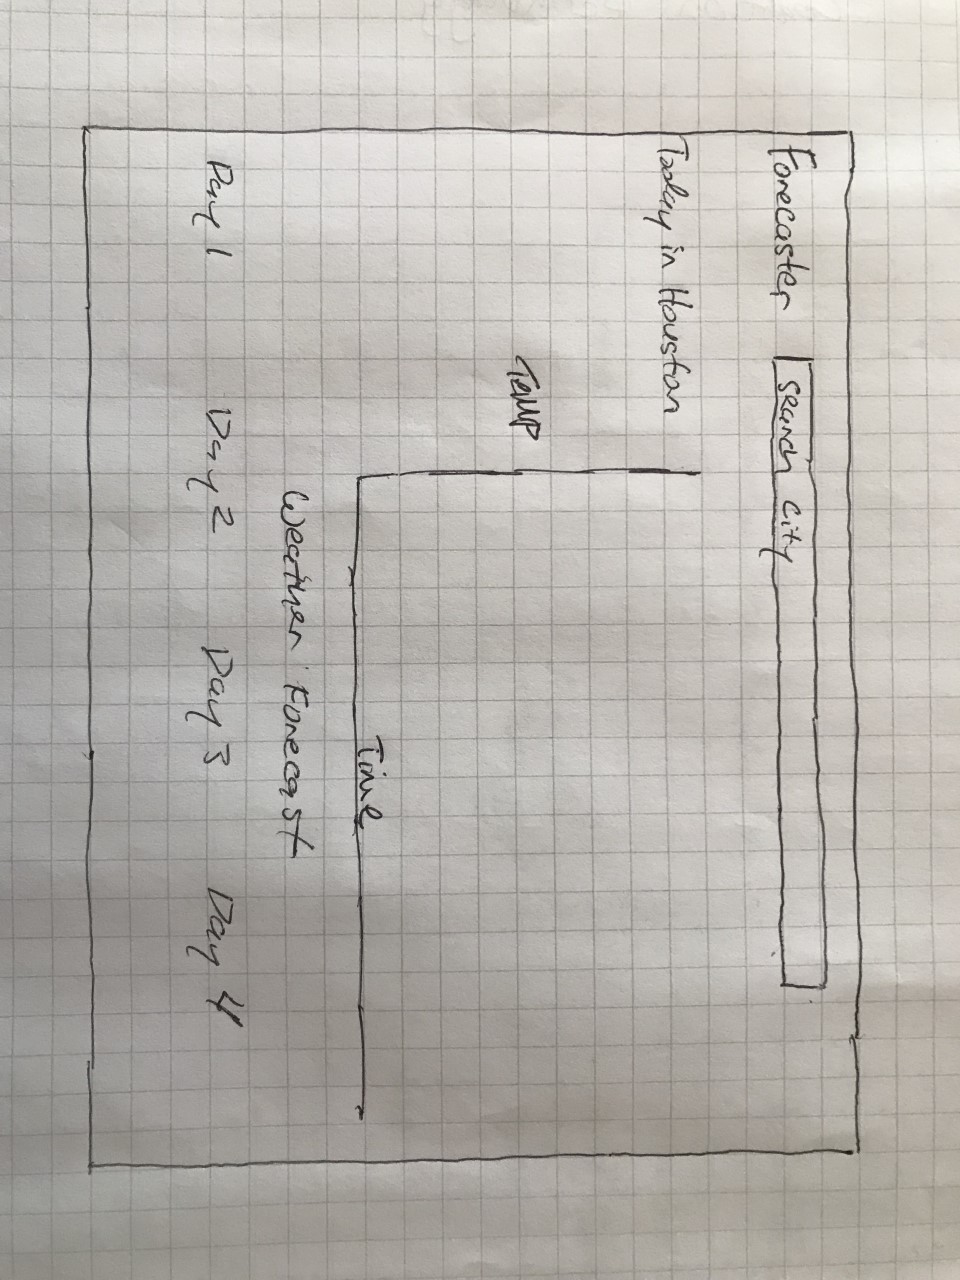 Forecaster
search city
Today in Houston
Temp
Time
Weather Forecast
Day 1 Day 2 Day 3 Day 4